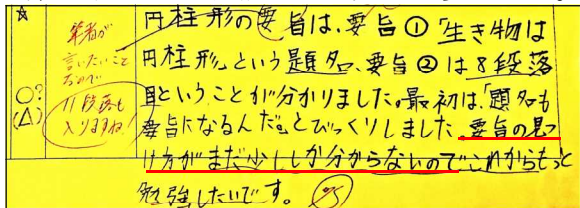 ☆
筆者が
言いたいこと
なので
11段落も
入りますね！
○?
(△)
円柱形の要旨は、要旨①「生き物は
円柱形」という題名、要旨②は8段落
目ということが分かりました。最初は、「題名も
要旨になるんだ。」とびっくりしました。要旨の見つ
け方がまだ少ししか分からないのでこれからもっと
勉強したいです。